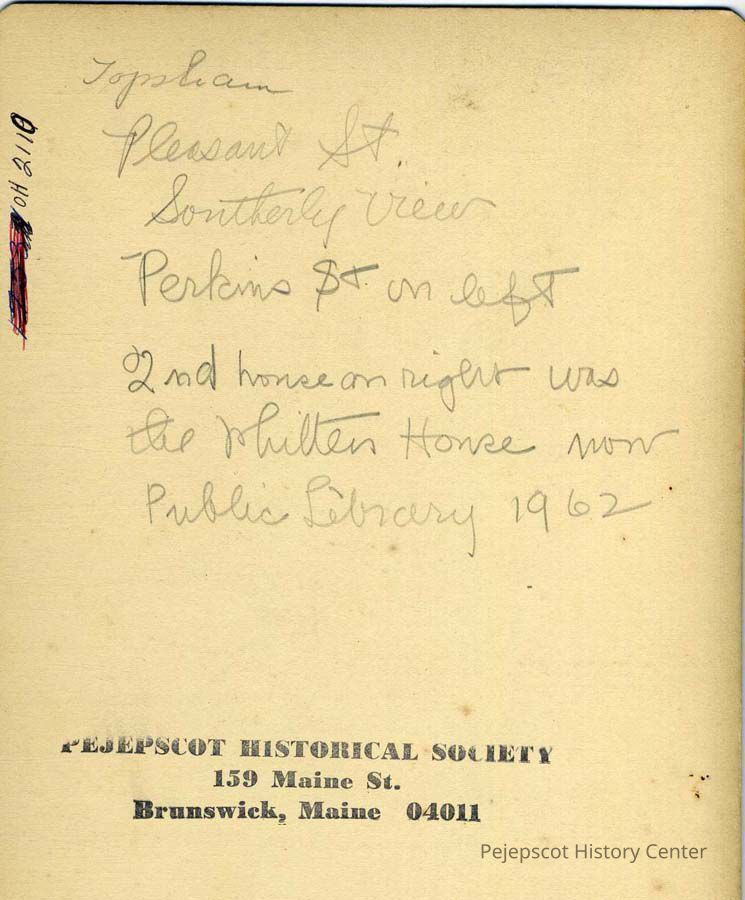 Topsham
Pleasant St.
Southerly View
Perkins St on left
2nd house on right was
the Whitten House now
Public Library 1962
OH 2110
PEJEPSCOT HISTORICAL SOCIETY
159 Maine St.
Brunswick, Maine 04011
Pejepscot History Center